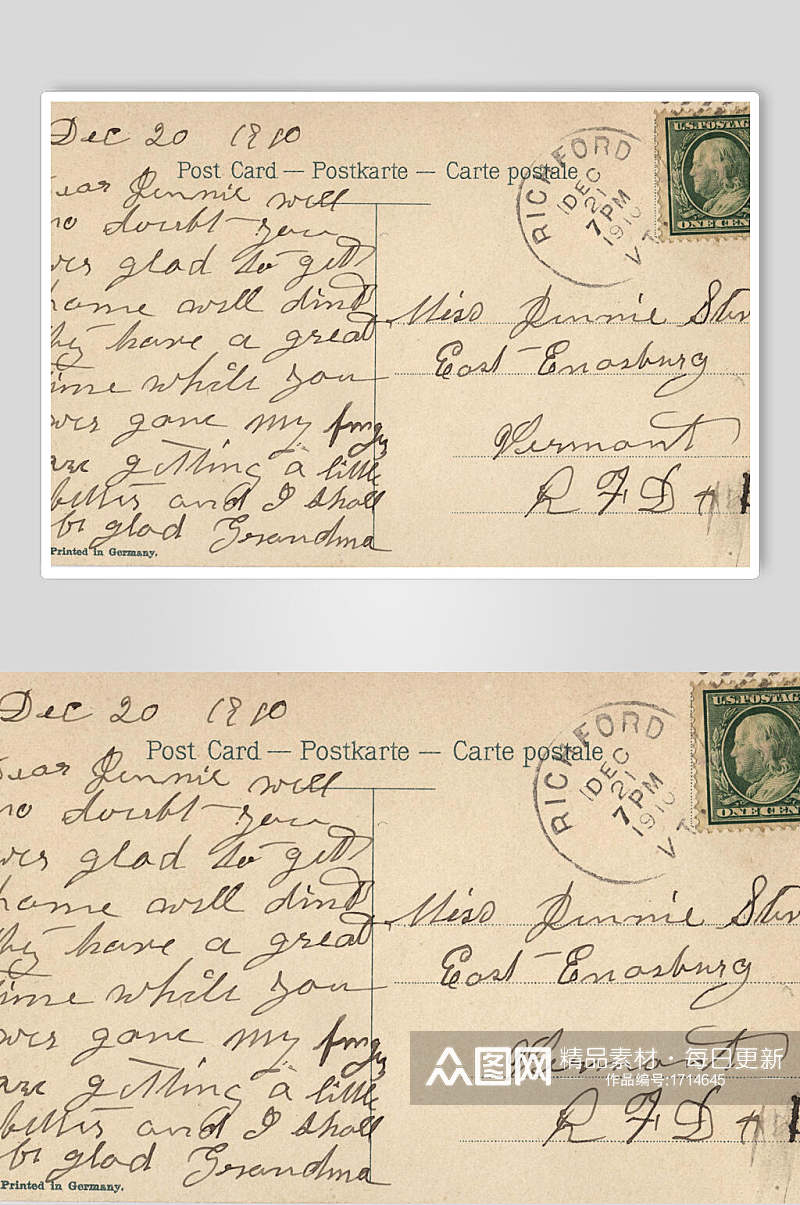 Dec 20 1910
Post Card — Postkarte — Carte postale
ear Jennie well
no doubt you
wer glad to gett
home well dind
they have a great
time while you
wer gone my fingrs
are getting a little
better and I shall
be glad Grandma
Printed in Germany.
RICHFORD
DEC
21
7 PM
1910
VT.
U.S. POSTAG
ONE CEN
Miss Jennie Stev
East Enosburg
Vermont
R F D #
Dec 20 1910
Post Card — Postkarte — Carte postale
ear Jennie well
no doubt you
wer glad to gett
home well dind
they have a great
time while you
wer gone my fingrs
are getting a little
better and I shall
be glad Grandma
Printed in Germany.
RICHFORD
DEC
21
7 PM
1910
VT.
U.S. POSTAG
ONE CEN
Miss Jennie Stev
East Enosburg
Vermont
R F D #
众图网
精品素材·每日更新
作品编号:1714645